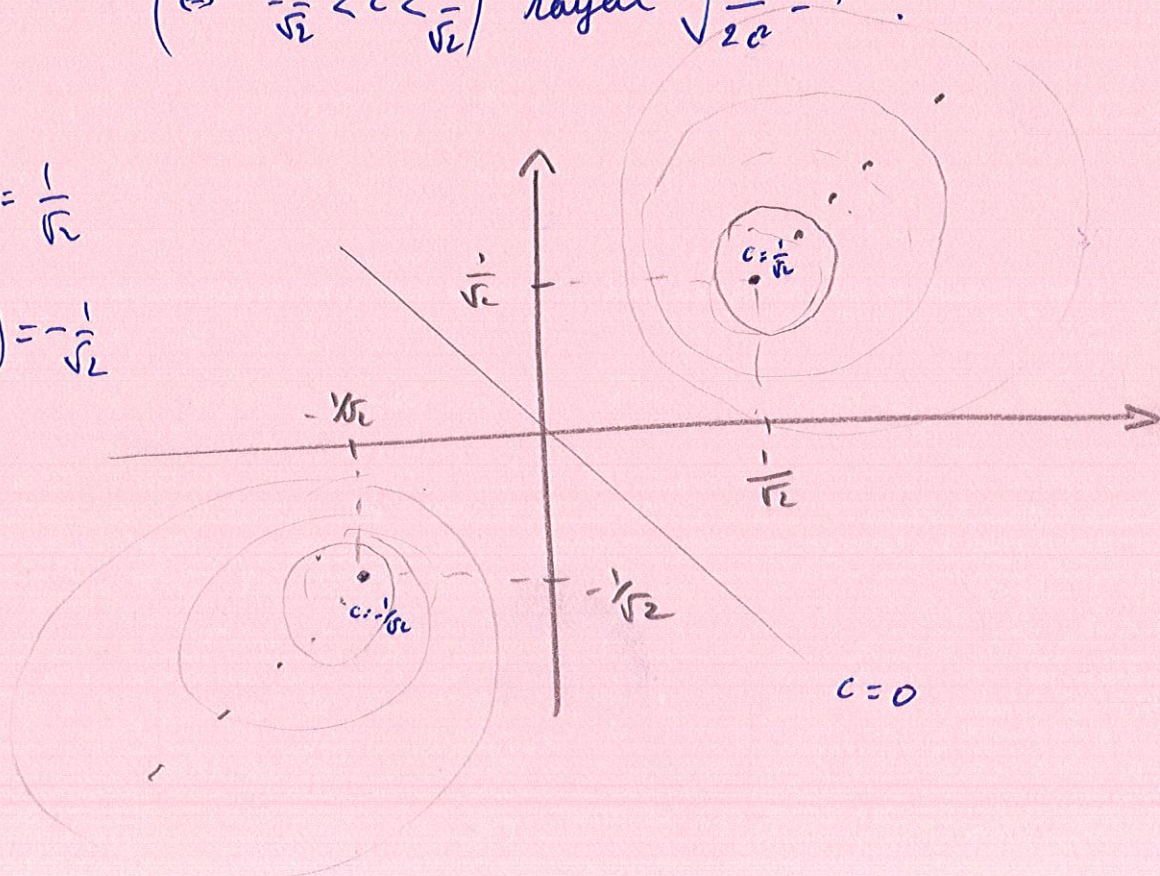 -1/√2 < c < 1/√2) rayon √1/2c² - 1.
= 1/√2
) = -1/√2
1/√2
c = 1/√2
-1/√2
1/√2
c = -1/√2
-1/√2
c = 0